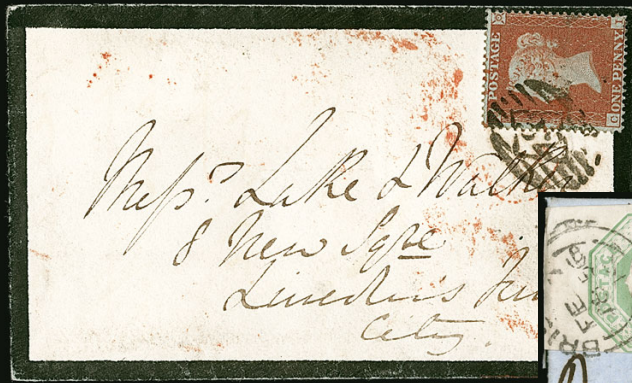 POSTAGE
ONE PENNY
C
Messrs. Lake & Walk
8 New Sqre
Lincoln's Inn
City.
BRIS
FE